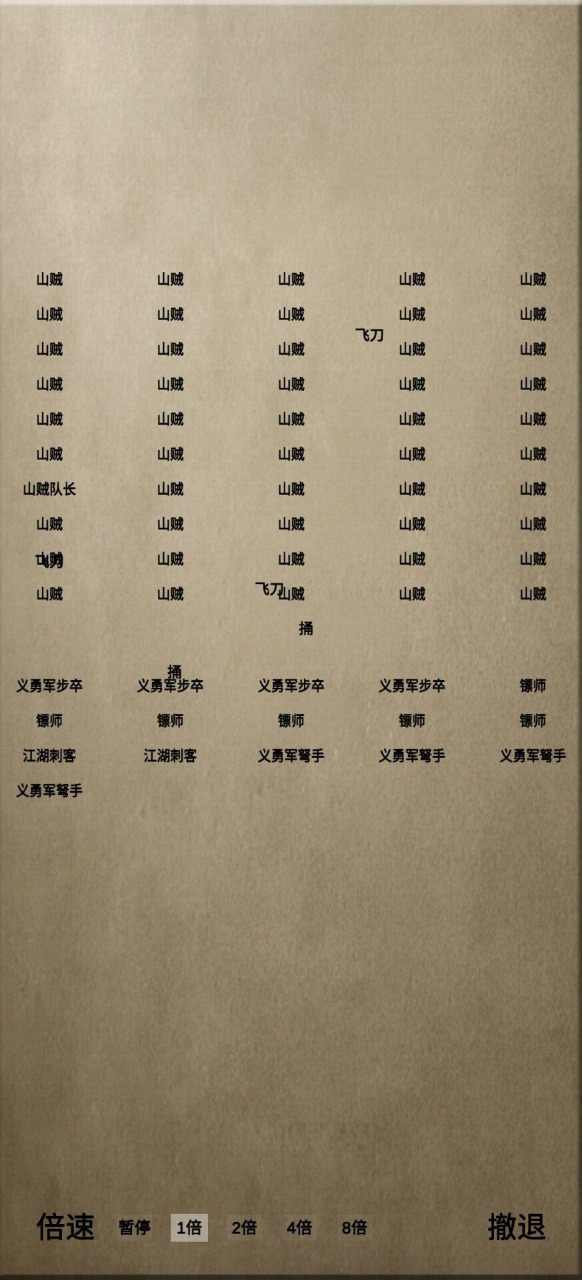 山贼 山贼 山贼 山贼 山贼
山贼 山贼 山贼 山贼 山贼
飞刀
山贼 山贼 山贼 山贼 山贼
山贼 山贼 山贼 山贼 山贼
山贼 山贼 山贼 山贼 山贼
山贼 山贼 山贼 山贼 山贼
山贼队长 山贼 山贼 山贼 山贼
山贼 山贼 山贼 山贼 山贼
山贼 飞刀 山贼 山贼 山贼 山贼
山贼 山贼 飞刀 山贼 山贼 山贼
捅
捅
义勇军步卒 义勇军步卒 义勇军步卒 义勇军步卒 镖师
镖师 镖师 镖师 镖师 镖师
江湖刺客 江湖刺客 义勇军弩手 义勇军弩手 义勇军弩手
义勇军弩手
倍速 暂停 1倍 2倍 4倍 8倍 撤退